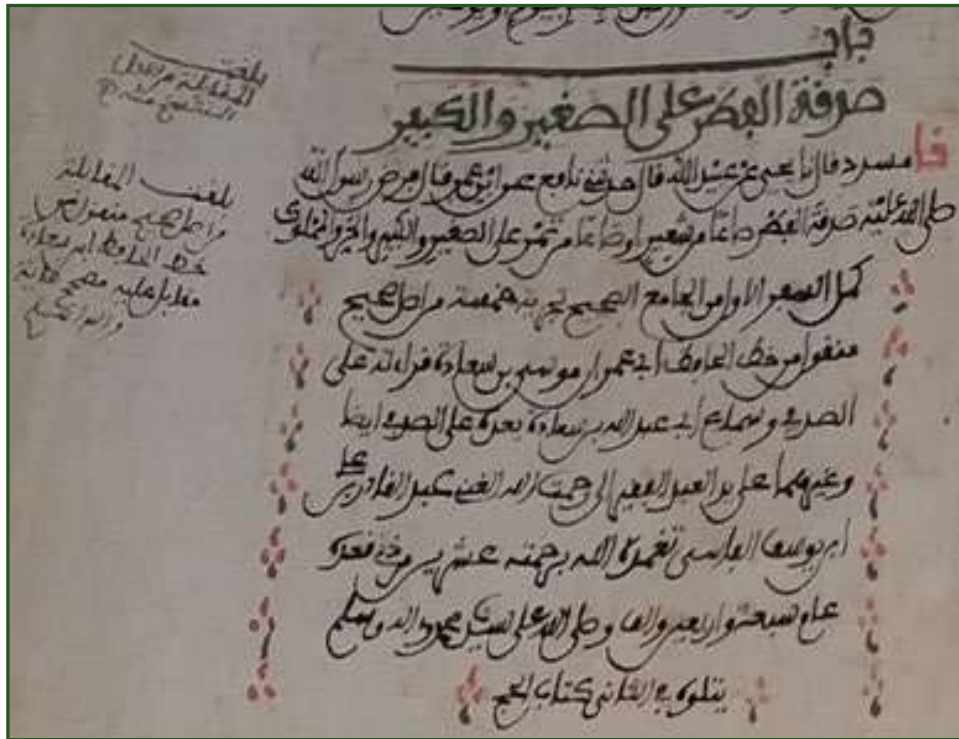 باب
صدقة الفطر على الصغير والكبير
نا مسدد قال نا يحيى عن عبيد الله قال حدثني نافع عن ابن عمر قال فرض رسول الله
صلى الله عليه صدقة الفطر صاعا من شعير أو صاعا من تمر على الصغير والكبير والحر والمملوك
كمل السفر الاول من الجامع الصحيح تجزية خمسة من اصل صحيح
منقول من خط الحافظ أبي عمران موسى بن سعادة قراءته على
الصدفي وسماع أبي عبد الله بن سعادة بعده على الصدفي ايضا
وغيرهما على يد العبد الفقير إلى رحمت الله الغني عبد القادر بن علي
ابن يوسف الفاسي تغمده الله برحمته عشرين من ذي قعدة
عام سبعة واربعين والف وصلى الله على سيدنا محمد واله وسلم
يتلوه في الثاني كتاب الحج
بلغت
المقابلة من الاصل
المنتسخ منه
بلغت المقابلة
من اصل صحيح منقول من
خط الحافظ ابن سعادة
مقابل عليه مصحح